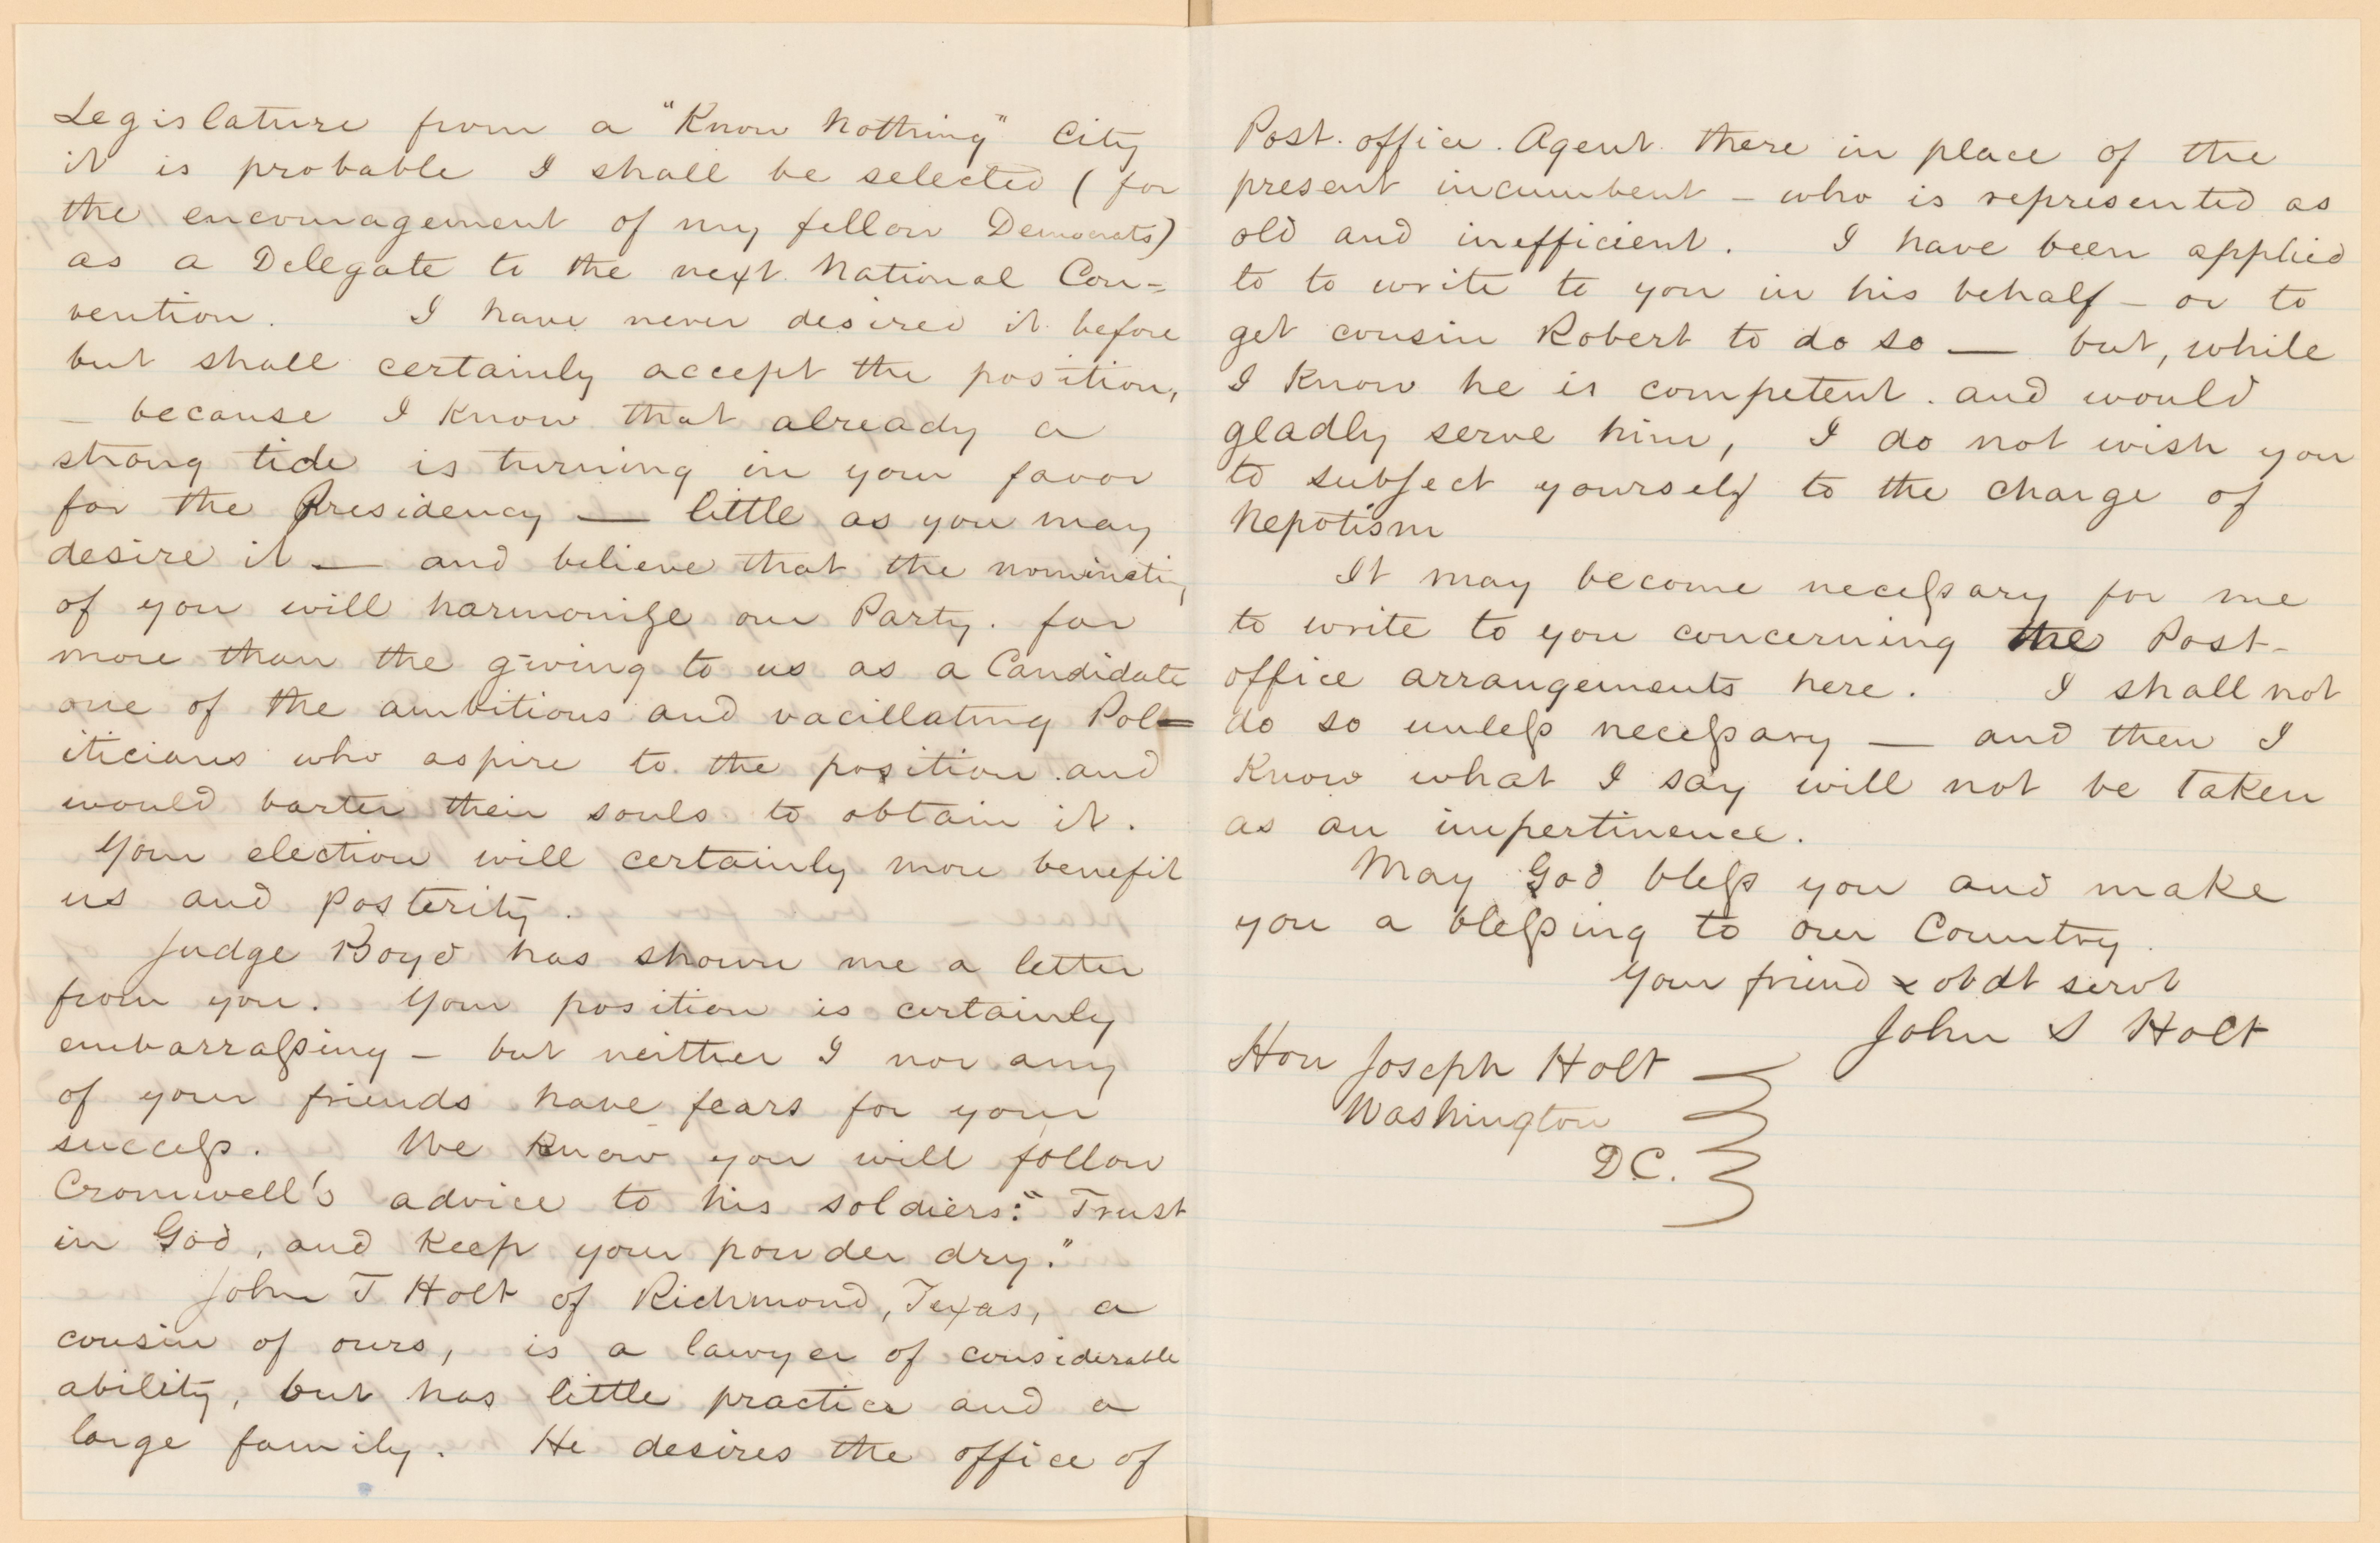 Legislature from a "Know Nothing" City
it is probable I shall be selected (for
the encouragement of my fellow Democrats)
as a Delegate to the next National Con=
vention. I have never desired it before
but shall certainly accept the position,
— because I know that already a
strong tide is turning in your favor
for the Presidency — little as you may
desire it — and believe that the nominatin
of you will harmonize our Party. far
more than the giving to us as a Candidate
one of the ambitious and vacillating Pol=
iticians who aspire to the position and
would barter their souls to obtain it.
Your election will certainly more benefit
us and posterity.
Judge Boyd has shown me a letter
from you. Your position is certainly
embarrassing — but neither I nor any
of your friends have fears for your
success. We know you will follow
Cromwell's advice to his soldiers: "Trust
in God, and keep your powder dry."
John T Holt of Richmond, Texas, a
cousin of ours, is a lawyer of considerable
ability, but has little practice and a
large family. He desires the office of
Post. office. Agent there in place of the
present incumbent — who is represented as
old and inefficient. I have been applied
to to write to you in his behalf — or to
get cousin Robert to do so — but, while
I know he is competent. and would
gladly serve him, I do not wish you
to subject yourself to the charge of
Nepotism
It may become necessary for me
to write to you concerning the Post-
office arrangements here. I shall not
do so unless necessary — and then I
know what I say will not be taken
as an impertinence.
May God bless you and make
you a blessing to our Country.
Your friend & obdt servt
John S Holt
Hon Joseph Holt
Washington
D.C.